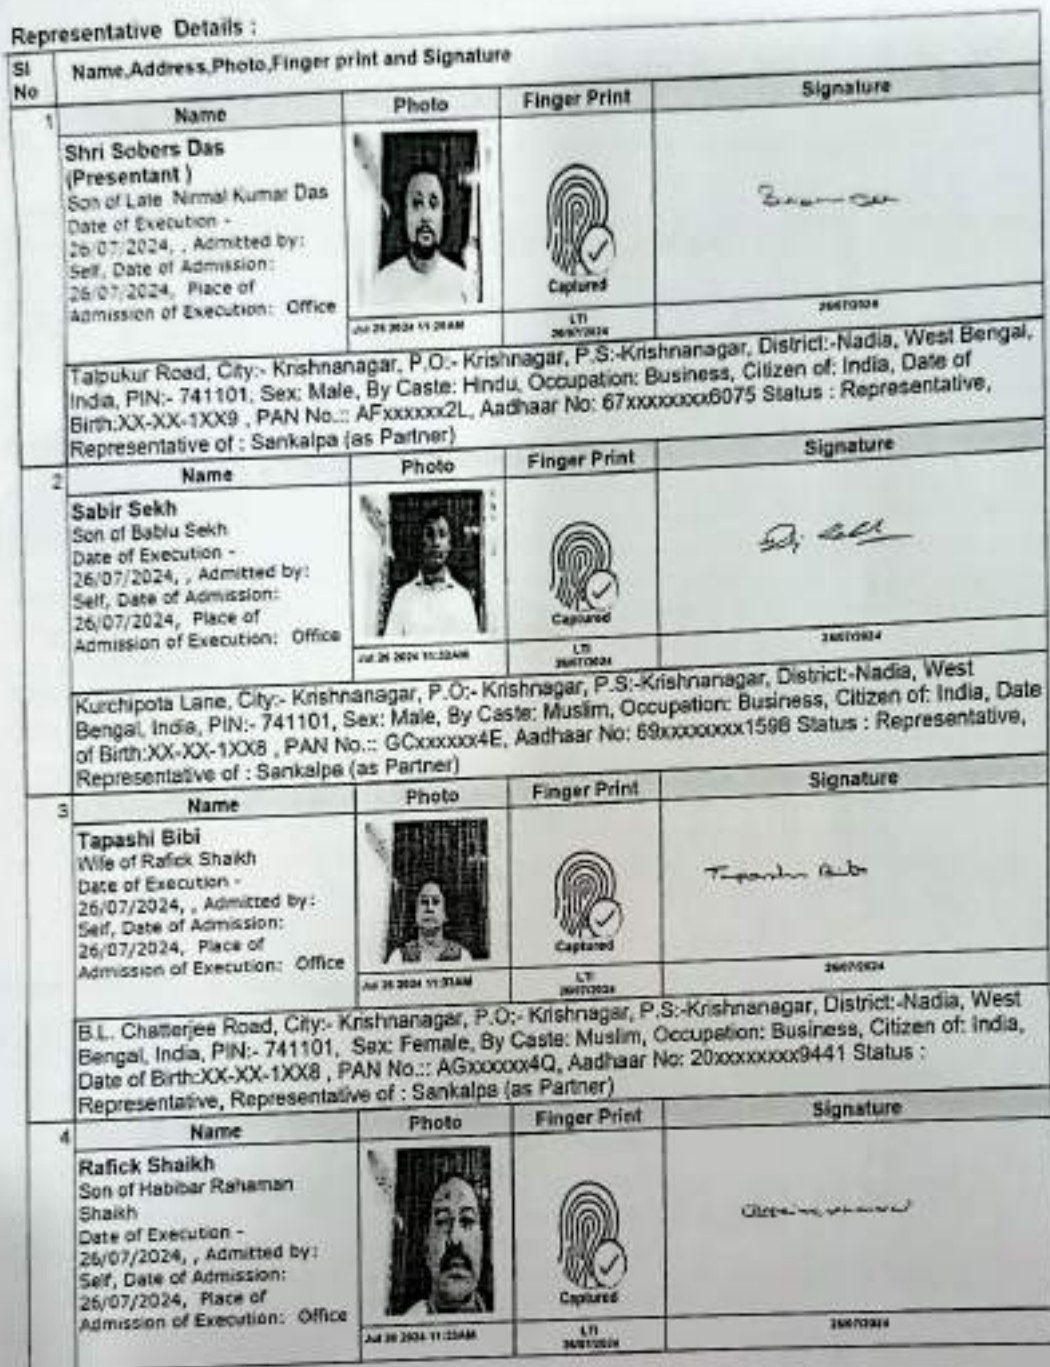 Representative Details :
Sl No Name,Address,Photo,Finger print and Signature
1 Name Photo Finger Print Signature
Shri Sobers Das
(Presentant )
Son of Late Nirmal Kumar Das
Date of Execution -
26/07/2024, , Admitted by:
Self, Date of Admission:
26/07/2024, Place of
Admission of Execution: Office
Captured
Jul 26 2024 11:26AM LTI 26/07/2024 26/07/2024
Talpukur Road, City:- Krishnanagar, P.O:- Krishnagar, P.S:-Krishnanagar, District:-Nadia, West Bengal,
India, PIN:- 741101, Sex: Male, By Caste: Hindu, Occupation: Business, Citizen of: India, Date of
Birth:XX-XX-1XX9 , PAN No.:: AFxxxxxx2L, Aadhaar No: 67xxxxxxxx6075 Status : Representative,
Representative of : Sankalpa (as Partner)
2 Name Photo Finger Print Signature
Sabir Sekh
Son of Bablu Sekh
Date of Execution -
26/07/2024, , Admitted by:
Self, Date of Admission:
26/07/2024, Place of
Admission of Execution: Office
Captured
Jul 26 2024 11:32AM LTI 26/07/2024 26/07/2024
Kurchipota Lane, City:- Krishnanagar, P.O:- Krishnagar, P.S:-Krishnanagar, District:-Nadia, West
Bengal, India, PIN:- 741101, Sex: Male, By Caste: Muslim, Occupation: Business, Citizen of: India, Date
of Birth:XX-XX-1XX8 , PAN No.:: GCxxxxxx4E, Aadhaar No: 69xxxxxxxx1598 Status : Representative,
Representative of : Sankalpa (as Partner)
3 Name Photo Finger Print Signature
Tapashi Bibi
Wife of Rafick Shaikh
Date of Execution -
26/07/2024, , Admitted by:
Self, Date of Admission:
26/07/2024, Place of
Admission of Execution: Office
Tapashi Bibi
Captured
Jul 26 2024 11:31AM LTI 26/07/2024 26/07/2024
B.L. Chatterjee Road, City:- Krishnanagar, P.O:- Krishnagar, P.S:-Krishnanagar, District:-Nadia, West
Bengal, India, PIN:- 741101, Sex: Female, By Caste: Muslim, Occupation: Business, Citizen of: India,
Date of Birth:XX-XX-1XX8 , PAN No.:: AGxxxxxx4Q, Aadhaar No: 20xxxxxxxx9441 Status :
Representative, Representative of : Sankalpa (as Partner)
4 Name Photo Finger Print Signature
Rafick Shaikh
Son of Habibar Rahaman
Shaikh
Date of Execution -
26/07/2024, , Admitted by:
Self, Date of Admission:
26/07/2024, Place of
Admission of Execution: Office
Captured
Jul 26 2024 11:33AM LTI 26/07/2024 26/07/2024